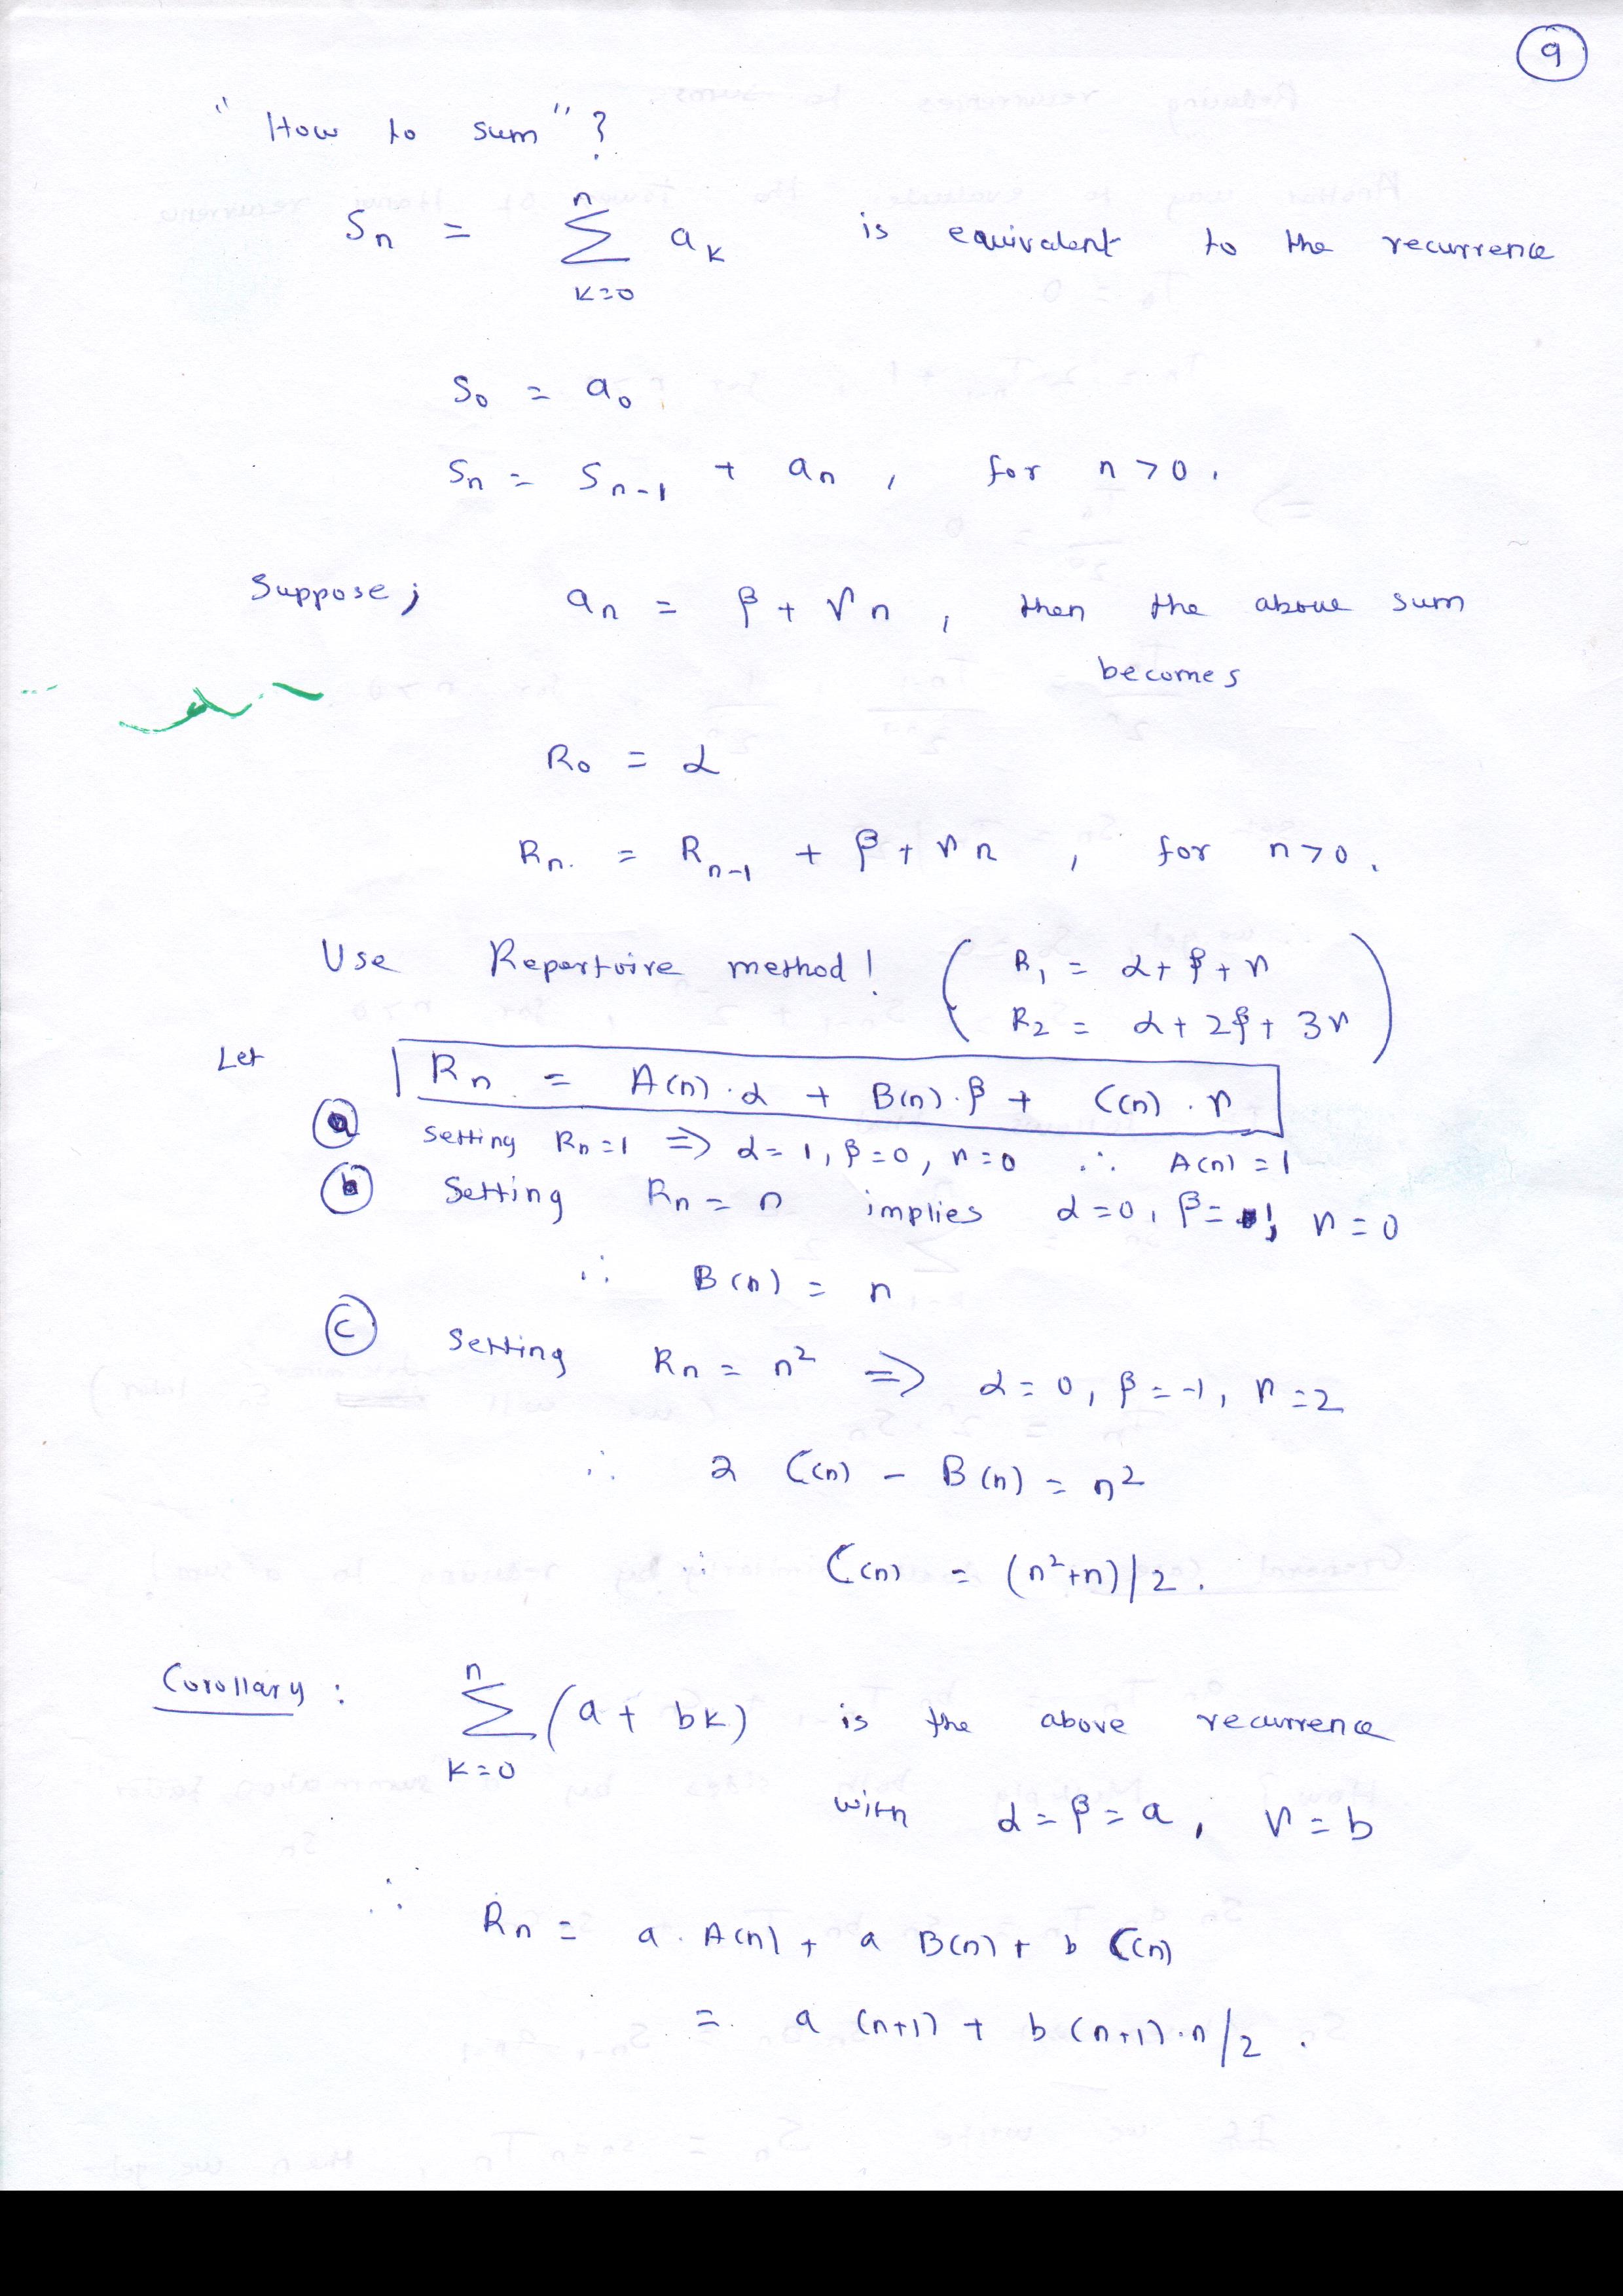 9
"How to sum"?
Sn = n∑k=0 ak is equivalent to the recurrence
S0 = a0
Sn = Sn-1 + an, for n > 0.
Suppose; an = β + γn, then the above sum
becomes
R0 = α
Rn = Rn-1 + β + γn, for n > 0.
Use Repertoire method! ( R1 = α + β + γ
R2 = α + 2β + 3γ )
Let Rn = A(n)·α + B(n)·β + C(n)·γ
(a) Setting Rn = 1 ⇒ α = 1, β = 0, γ = 0 ∴ A(n) = 1
(b) Setting Rn = n implies α = 0, β = 1, γ = 0
∴ B(n) = n
(c) Setting Rn = n² ⇒ α = 0, β = -1, γ = 2
∴ 2 C(n) - B(n) = n²
∴ C(n) = (n²+n)/2.
Corollary: n∑k=0 (a + bk) is the above recurrence
with α = β = a, γ = b
∴ Rn = a·A(n) + a B(n) + b C(n)
= a (n+1) + b (n+1)·n/2.